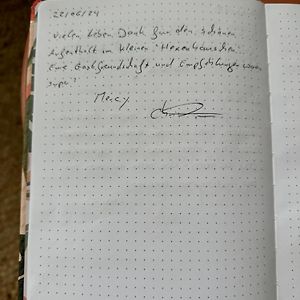 22/06/24
Vielen lieben Dank für den schönen
Aufenthalt im kleinen "Hexenhäuschen".
Eure Gastfreundschaft und Empfehlungen waren
super!
Mercy